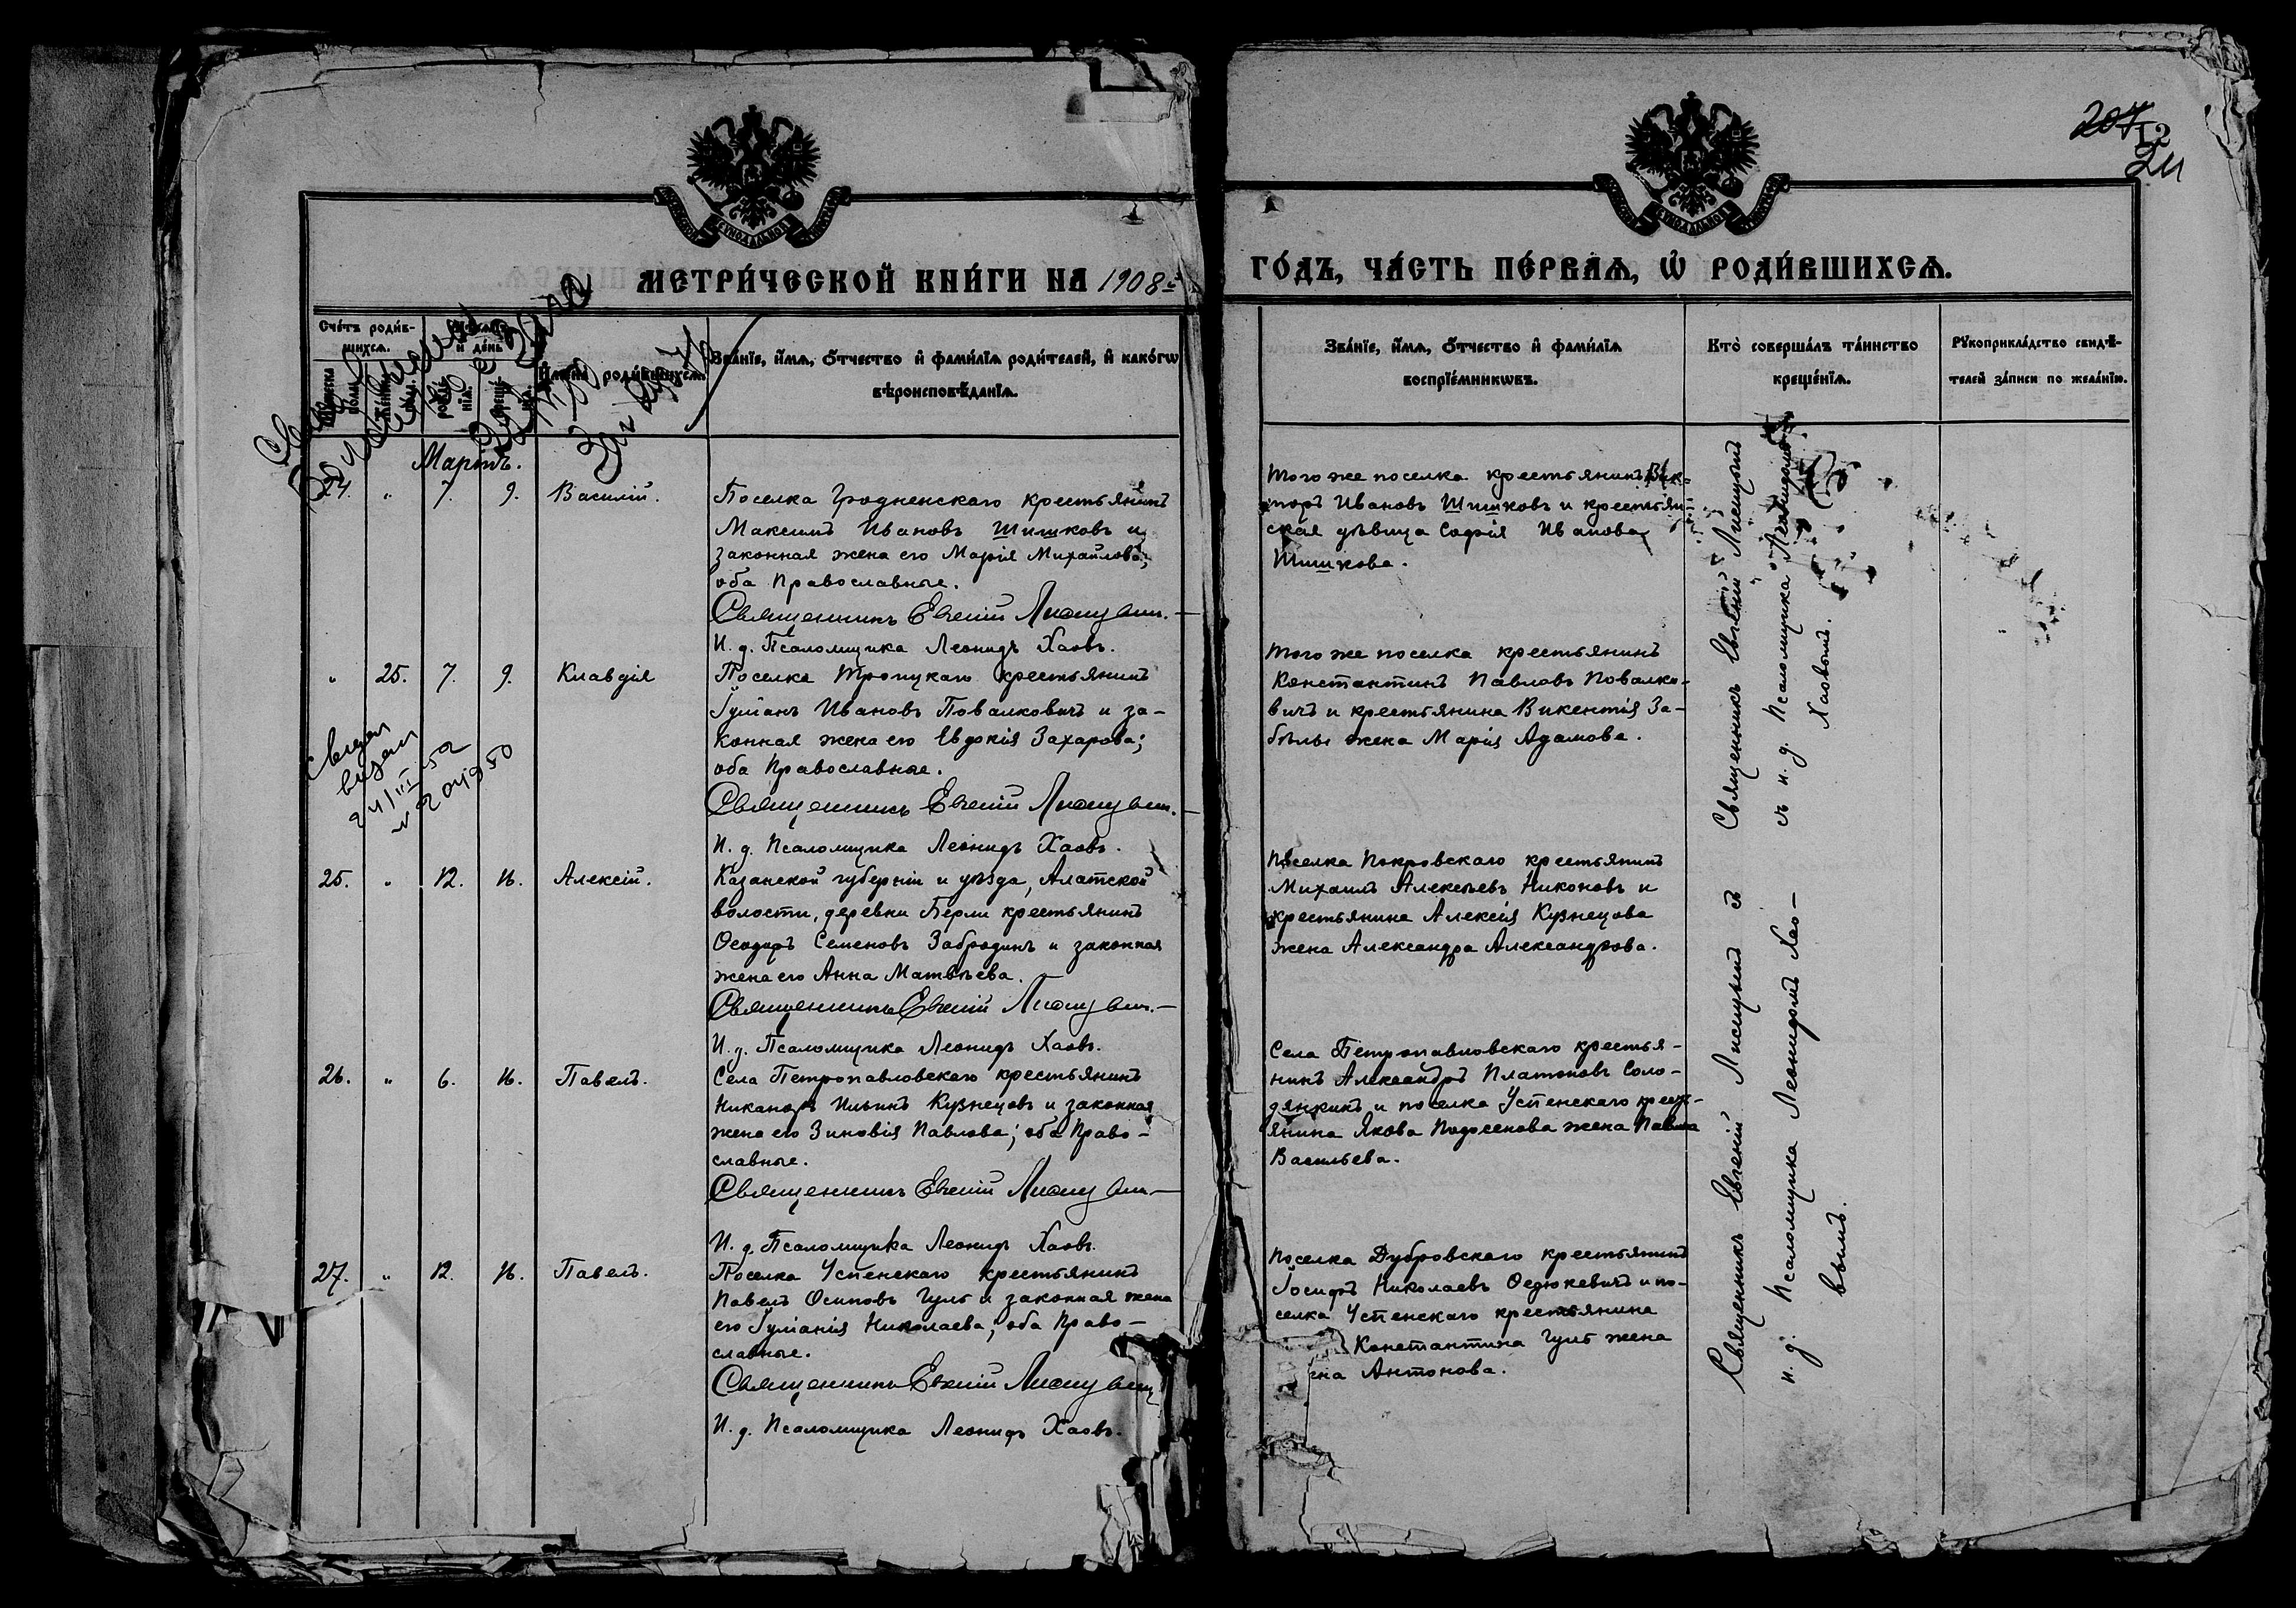 207
12
211
МЕТРИ́ЧЕСКОЙ КНИ́ГИ НА 1908 й
ГО́ДЪ, ЧА́СТЬ ПЕ́РВАѦ, Ѽ РОДИ́ВШИХСѦ.
Сче́тъ роди́в-
шихсѧ.
и де́нь
роди́вшихсѧ.
Зва́нїе, и́мѧ, ѻ́тчество и҆ фами́лїѧ роди́телей, и҆ како́гѡ
вѣроисповѣ́данїѧ.
Зва́нїе, и́мѧ, ѻ́тчество и҆ фами́лїѧ
воспрїе́мникѡвъ.
Кто̀ соверша́лъ та́инство
креще́нїѧ.
Рꙋкоприкла́дство свидѣ́-
телей за́писи по жела́нїю.
Мартъ.
24. „ 7. 9. Василій.
Поселка Гродненскаго крестьянинъ
Максимъ Ивановъ Шишковъ и
законная жена его Марія Михайлова;
оба Православные.
Священникъ Евгеній Лисицынъ.
И. д. Псаломщика Леонидъ Хаовъ.
Того же поселка крестьянинъ Вик-
торъ Ивановъ Шишковъ и крестьян-
ская дѣвица Софія Иванова
Шишкова.
„ 25. 7. 9. Клавдія
Поселка Троицкаго крестьянинъ
Іуліанъ Ивановъ Повалковичъ и за-
конная жена его Евдокія Захарова;
оба Православные.
Священникъ Евгеній Лисицынъ.
И. д. Псаломщика Леонидъ Хаовъ.
Того же поселка крестьянинъ
Константинъ Павловъ Повалко-
вичъ и крестьянина Викентія За-
бѣлы жена Марія Адамова.
24/III-52
25. „ 12. 16. Алексій.
Казанской губерніи и уѣзда, Алатской
волости, деревни Берли крестьянинъ
Ѳеодоръ Семеновъ Забродинъ и законная
жена его Анна Матвѣева.
Священникъ Евгеній Лисицынъ.
И. д. Псаломщика Леонидъ Хаовъ.
Поселка Покровскаго крестьянинъ
Михаилъ Алексѣевъ Никоновъ и
крестьянина Алексія Кузнецова
жена Александра Александрова.
26. „ 6. 16. Павелъ.
Села Петропавловскаго крестьянинъ
Никаноръ Ильинъ Кузнецовъ и законная
жена его Зиновія Павлова; оба Право-
славные.
Священникъ Евгеній Лисицынъ
И. д. Псаломщика Леонидъ Хаовъ.
Села Петропавловскаго крестья-
нинъ Александръ Платоновъ Соло-
дянкинъ и поселка Успенскаго крест-
янина Якова жена
Васильева.
27. „ 12. 16. Павелъ.
Поселка Успенскаго крестьянинъ
Павелъ Осиповъ Гуль и законная жена
его Іуліанія Николаева; оба Право-
славные.
Священникъ Евгеній Лисицынъ
И. д. Псаломщика Леонидъ Хаовъ.
Поселка Дубровскаго крестьянинъ
Іосифъ Николаевъ Ѳедюкевичъ и по-
селка Успенскаго крестьянина
Константина Гуль жена
Антонова.
Священникъ Евгеній Лисицынъ
съ и. д. Псаломщика Леонидомъ
Хаовымъ.
Священникъ Евгеній Лисицынъ съ
и. д. Псаломщика Леонидомъ Хао-
вымъ.